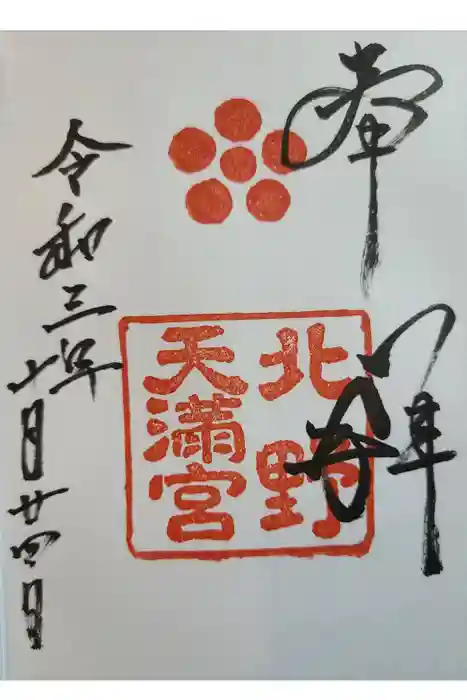 奉拝
北野
天満宮
令和三年十月廿四日